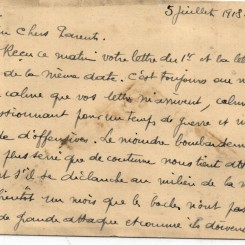 5 juillet 1918
Chers Parents
Reçu ce matin votre lettre du 1er et la lett
de la même date. C'est toujours au m
calme que vos lettres m'arrivent, calm
pour un temps de guerre et
d'offensives. Le moindre bombardemen
plus serré que de coutume nous tient
s'il se déclanche au milieu de la n
bientôt un mois que les boches n'ont pas
de grande attaque et comme ils doivent